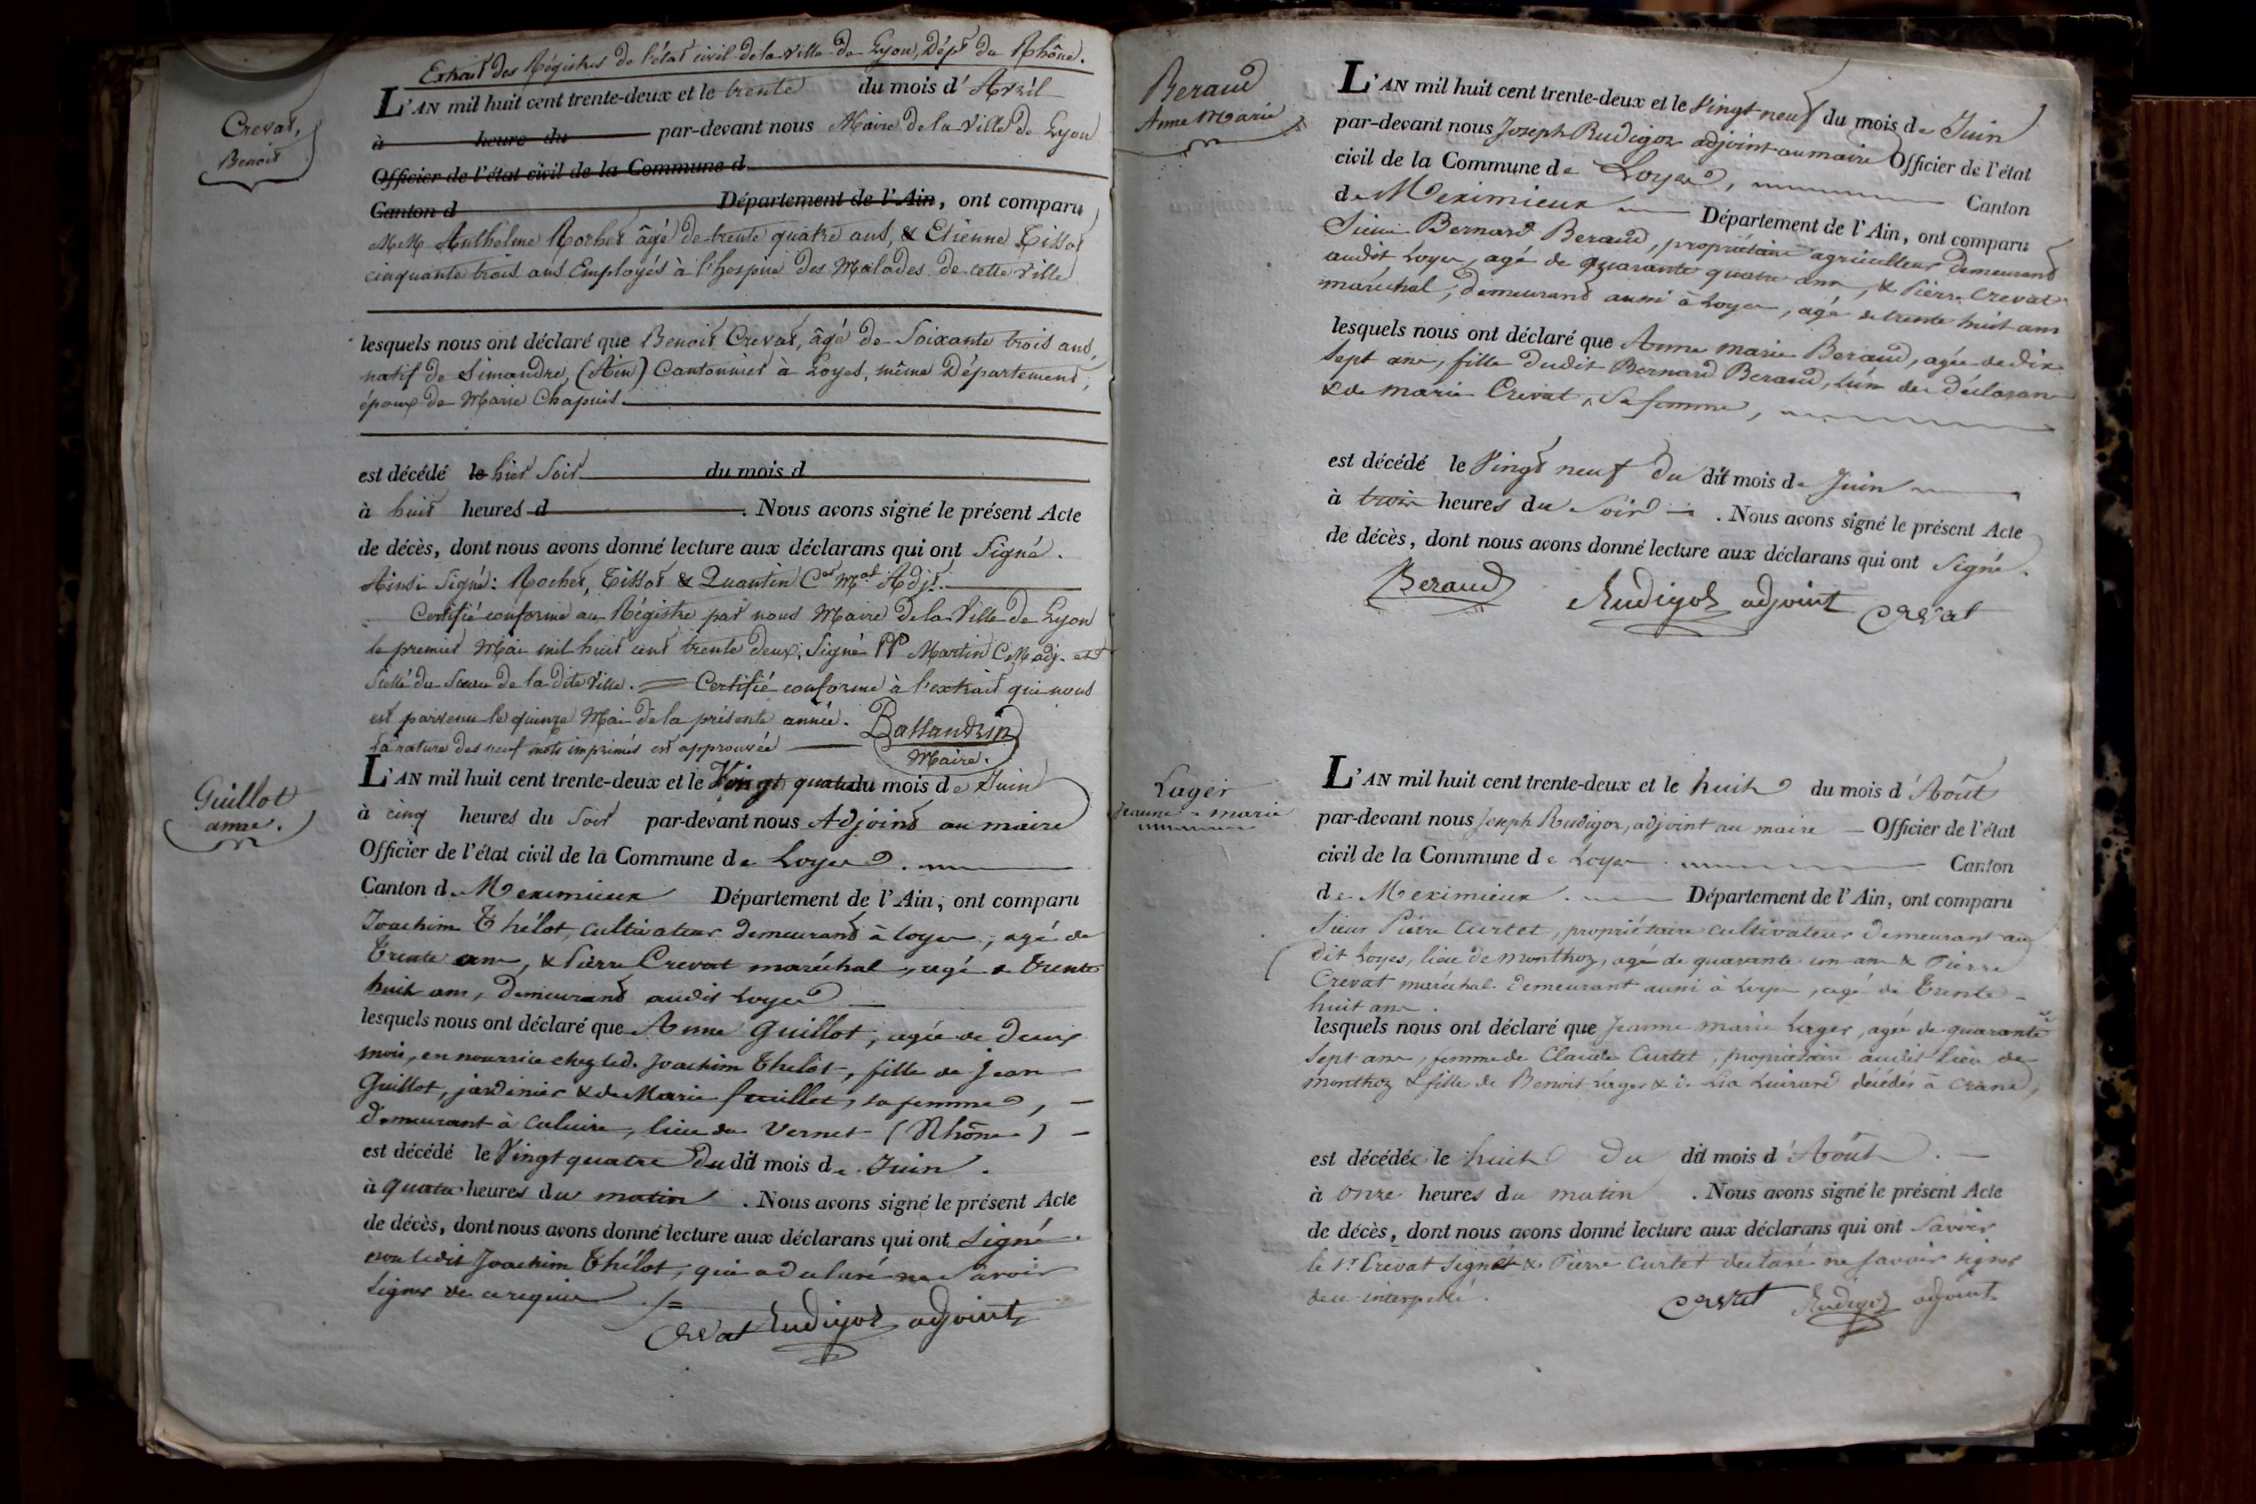 Crevat,
Benoit
Extrait des Régistres de l'état civil de la ville de Lyon, Dépt du Rhône.
L'AN mil huit cent trente-deux et le trente du mois d'Avril
à heure du par-devant nous Maire de la Ville de Lyon
Officier de l'état civil de la Commune d
Canton d Département de l'Ain, ont comparu
MM Anthelme Rochet âgé de trente quatre ans, & Etienne Tissot
cinquante trois ans Employés à l'hospice des Malades de cette Ville
lesquels nous ont déclaré que Benoit Crevat, âgé de Soixante trois ans,
natif de Simandre, (Ain) Cantonnier à Loyes, même Département,
époux de Marie Chapuis.
est décédé le hier Soir du mois d
à huit heures d . Nous avons signé le présent Acte
de décès, dont nous avons donné lecture aux déclarans qui ont Signé.
Ainsi Signé: Rochet, Tissot & Quantin Cer Mal Adjt.
Certifié conforme au Régistre par nous Maire de la Ville de Lyon
le premier Mai mil huit cent trente deux, Signé PP Martin C M adj. et
Scellé du Sceau de la dite Ville. = Certifié conforme à l'extrait qui nous
est parvenu le quinze Mai de la présente année. Ballandrin
La rature des neuf mots imprimés est approuvée Maire.
Guillot
anne.
L'AN mil huit cent trente-deux et le Vingt quatre du mois de Juin
à cinq heures du Soir par-devant nous Adjoint au maire
Officier de l'état civil de la Commune de Loyes.
Canton de Meximieux Département de l'Ain, ont comparu
Joachim Thélot, cultivateur demeurant à loyes, agé de
Trente ans, & Pierre Crevat maréchal, agé de trente
huit ans, demeurant audit Loyes
lesquels nous ont déclaré que Anne Guillot, agée de deux
mois, en nourrice chez led. Joachim Thélot, fille de Jean
Guillot, jardinier & de Marie fouillet, sa femme,
demeurant à Culuire, lieu du Vernet (Rhône)
est décédé le Vingt quatre du dit mois de Juin.
à quatre heures du matin . Nous avons signé le présent Acte
de décès, dont nous avons donné lecture aux déclarans qui ont Signé
non ledit Joachim Thélot, qui a déclaré ne Savoir
Signer de ce requis
Crevat Rudigoz adjoint
Beraud
Anne Marie
L'AN mil huit cent trente-deux et le Vingt neuf du mois de Juin
par-devant nous Joseph Rudigoz adjoint au maire Officier de l'état
civil de la Commune de Loyes, Canton
de Meximieux Département de l'Ain, ont comparu
Sieur Bernard Beraud, propriétaire agriculteur demeurant
audit Loyes, agé de quarante quatre ans, & Pierre Crevat
maréchal, demeurant aussi à Loyes, agé de trente huit ans
lesquels nous ont déclaré que Anne Marie Beraud, agée de dix
Sept ans, fille dudit Bernard Beraud, l'un des déclarans
& de marie Crevat, Sa femme,
est décédé le Vingt neuf du dit mois de Juin
à trois heures du Soir . Nous avons signé le présent Acte
de décès, dont nous avons donné lecture aux déclarans qui ont Signé.
Beraud Rudigoz adjoint Crevat
Lager
Jeanne-marie
L'AN mil huit cent trente-deux et le huit du mois d'Août
par-devant nous Joseph Rudigoz, adjoint au maire Officier de l'état
civil de la Commune de Loyes Canton
de Meximieux. Département de l'Ain, ont comparu
Sieur Pierre Curtet, propriétaire cultivateur demeurant au
dit Loyes, lieu de Monthoz, agé de quarante un ans & Pierre
Crevat maréchal demeurant aussi à Loyes, agé de Trente-
huit ans.
lesquels nous ont déclaré que Jeanne Marie Lager, agée de quarante
Sept ans, femme de Claude Curtet, propriétaire audit Lieu de
monthoz & fille de Benoit Lager & de décédés à Crans,
est décédée le huit du dit mois d'Août.
à onze heures du matin . Nous avons signé le présent Acte
de décès, dont nous avons donné lecture aux déclarans qui ont Savoir
le Sr Crevat Signé & Pierre Curtet déclaré ne Savoir signer
de ce interpellé.
Crevat Rudigoz adjoint